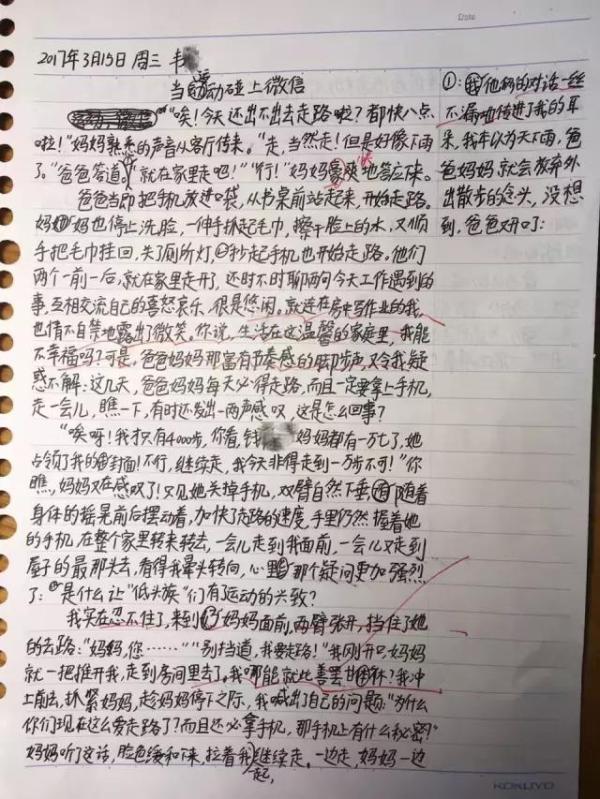 Date
2017年3月15日 周三 韦
当运动碰上微信
"唉！今天还出不出去走路啦？都快八点
啦！"妈妈熟悉的声音从客厅传来。"走，当然走！但是好像下雨
了。"爸爸答道。"就在家里走吧！""行！"妈妈豪爽地答应下来。
爸爸当即把手机放进口袋，从书桌前站起来，开始走路。
妈妈也停止洗脸，一伸手抓起毛巾，擦干脸上的水，又顺
手把毛巾挂回，关了厕所灯，抄起手机也开始走路。他们
两个一前一后，就在家里走开了，还时不时聊两句今天工作遇到的
事，互相交流自己的喜怒哀乐，很是悠闲。就连在房中写作业的我，
也情不自禁地露出了微笑。你说，生活在这温馨的家庭里，我能
不幸福吗？可是，爸爸妈妈那富有节奏感的脚步声，又令我疑
惑不解：这几天，爸爸妈妈每天必得走路，而且一定要拿上手机，
走一会儿，瞧一下，有时还发出一两声感叹，这是怎么回事？
"唉呀！我才只有4000步，你看，钱 妈妈都有一万七了，她
占领了我的封面！不行，继续走，我今天非得走到一万步不可！"你
瞧，妈妈又在感叹了！只见她关掉手机，双臂自然下垂，随着
身体的摇晃前后摆动着，加快了走路的速度，手里仍然握着她
的手机，在整个家里转来转去，一会儿走到我面前，一会儿又走到
屋子的最那头去，看得我晕头转向，心里那个疑问更加强烈
了：是什么让"低头族"们有运动的兴致？
我实在忍不住了，来到妈妈面前，两臂张开，挡住了她
的去路："妈妈，您……""别挡道，我要走路！"我刚开口，妈妈
就一把推开我，走到房间里去了。我哪能就此善罢甘休？我冲
上前去，抓紧妈妈，趁妈妈停下之际，我喊出了自己的问题："为什么
你们现在这么爱走路了？而且还必拿手机，那手机上有什么秘密？"
妈妈听了这话，脸色缓和下来，拉着我一起继续走。一边走，妈妈一边
①：我他们的对话一丝
不漏地传进了我的耳
朵，我本以为天下雨，爸
爸妈妈就会放弃外
出散步的念头，没想
到，爸爸又开口了：
KOKUYO